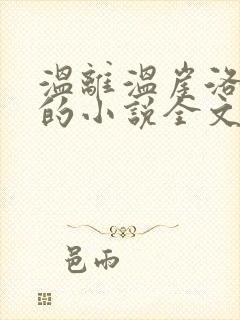 溫離溫崖洛
的小說全文
邑雨